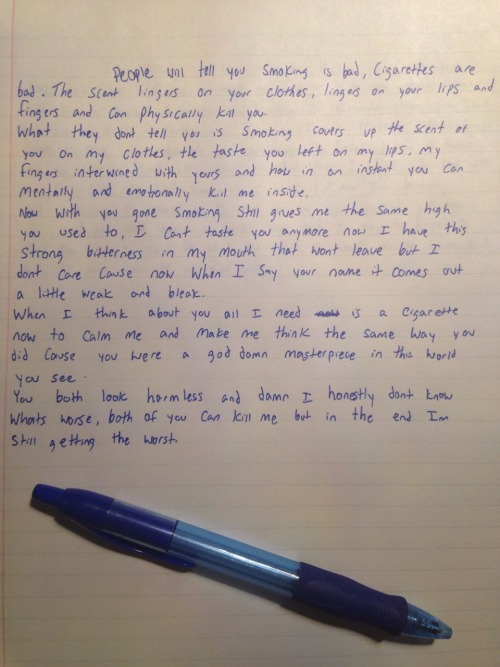 People will tell you Smoking is bad, Cigarettes are
bad. The scent lingers on your clothes, lingers on your lips and
fingers and can physically kill you.
What they dont tell you is smoking covers up the scent of
you on my clothes, the taste you left on my lips. my
fingers interwined with yours and how in an instant you can
mentally and emotionally kill me inside.
Now with you gone smoking still gives me the same high
you used to, I cant taste you anymore now I have this
strong bitterness in my mouth that wont leave but I
dont care cause now when I say your name it comes out
a little weak and bleak.
When I think about you all I need is a cigarette
now to calm me and make me think the same way you
did cause you were a god damn masterpiece in this world
you see.
You both look harmless and damn I honestly dont know
whats worse, both of you can kill me but in the end Im
still getting the worst.